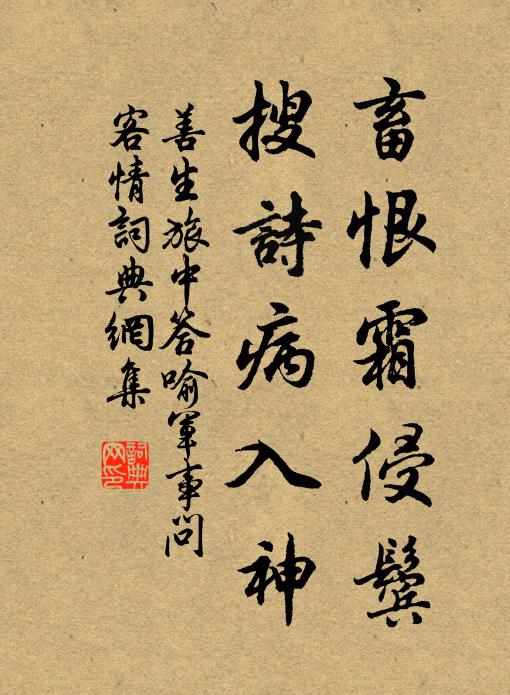 畜恨霜侵鬢
搜詩病入神
善生旅中答喻軍事問
客情詞典網集
詞典網印